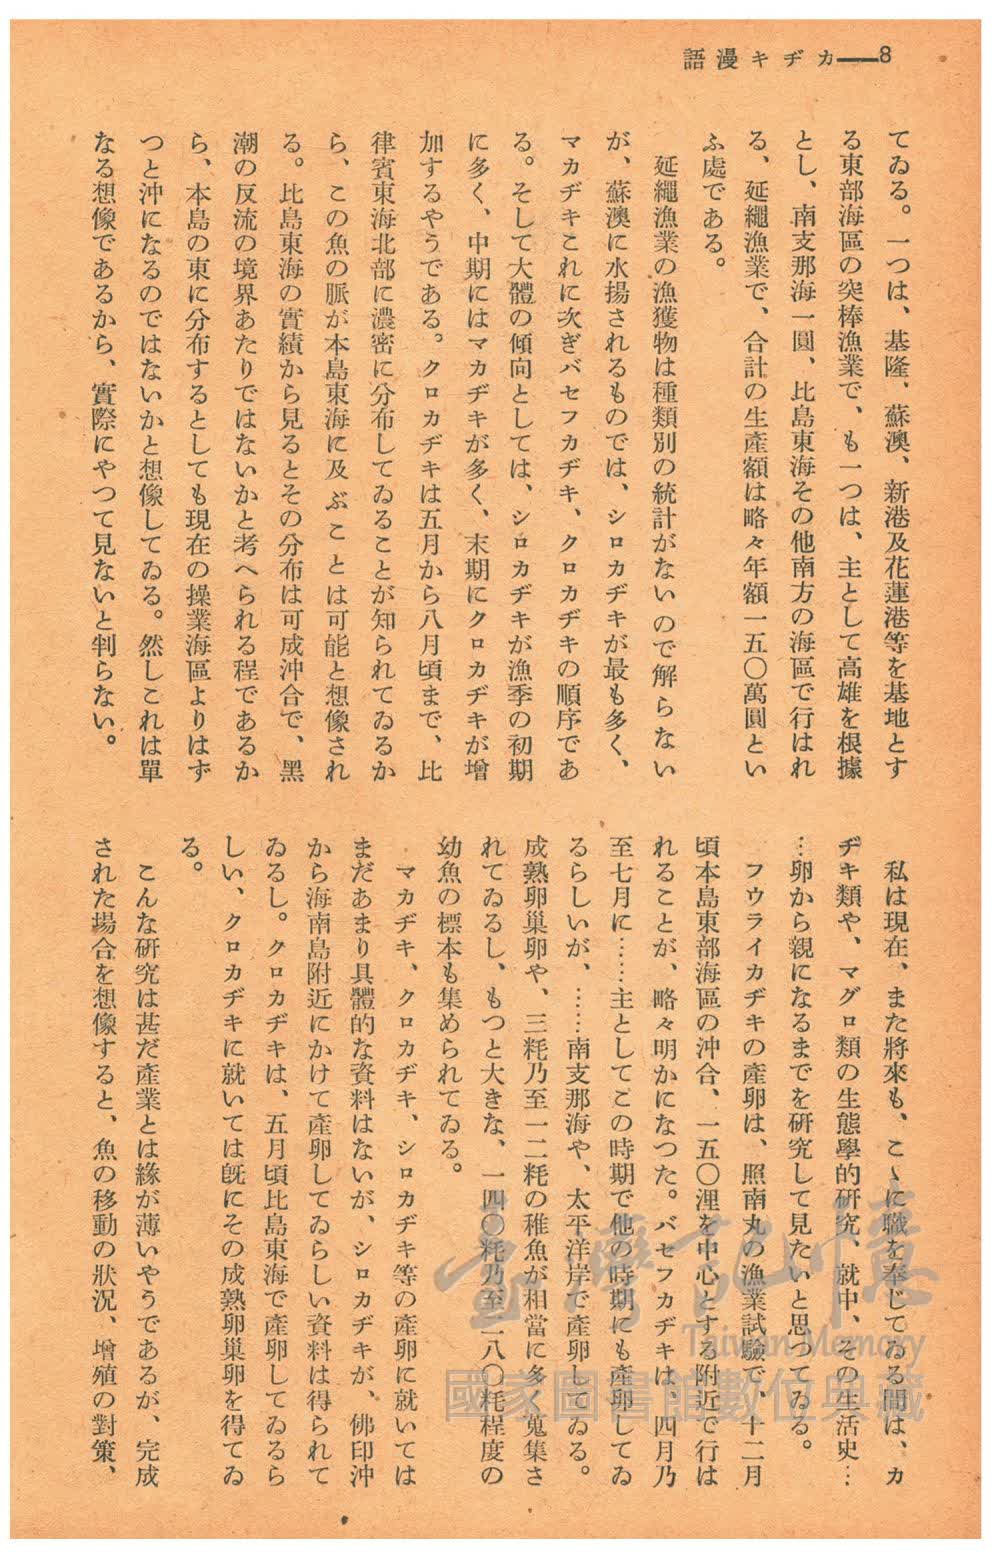 8――カヂキ漫語
てゐる。一つは、基隆、蘇澳、新港及花蓮港等を基地とす
る東部海區の突棒漁業で、も一つは、主として高雄を根據
とし、南支那海一圓、比島東海その他南方の海區で行はれ
る、延繩漁業で、合計の生産額は略々年額一五〇萬圓とい
ふ處である。
延繩漁業の漁獲物は種類別の統計がないので解らない
が、蘇澳に水揚されるものでは、シロカヂキが最も多く、
マカヂキこれに次ぎバセフカヂキ、クロカヂキの順序であ
る。そして大體の傾向としては、シロカヂキが漁季の初期
に多く、中期にはマカヂキが多く、末期にクロカヂキが增
加するやうである。クロカヂキは五月から八月頃まで、比
律賓東海北部に濃密に分布してゐることが知られてゐるか
ら、この魚の脈が本島東海に及ぶことは可能と想像され
る。比島東海の實績から見るとその分布は可成沖合で、黑
潮の反流の境界あたりではないかと考へられる程であるか
ら、本島の東に分布するとしても現在の操業海區よりはず
つと沖になるのではないかと想像してゐる。然しこれは單
なる想像であるから、實際にやつて見ないと判らない。
私は現在、また將來も、こゝに職を奉じてゐる間は、カ
ヂキ類や、マグロ類の生態學的研究、就中、その生活史…
…卵から親になるまでを研究して見たいと思つてゐる。
フウライカヂキの産卵は、照南丸の漁業試驗で、十二月
頃本島東部海區の沖合、一五〇浬を中心とする附近で行は
れることが、略々明かになつた。バセフカヂキは、四月乃
至七月に……主としてこの時期で他の時期にも産卵してゐ
るらしいが、……南支那海や、太平洋岸で産卵してゐる。
成熟卵巢卵や、三粍乃至一二粍の稚魚が相當に多く蒐集さ
れてゐるし、もつと大きな、一四〇粍乃至二八〇粍程度の
幼魚の標本も集められてゐる。
マカヂキ、クロカヂキ、シロカヂキ等の産卵に就いては
まだあまり具體的な資料はないが、シロカヂキが、佛印沖
から海南島附近にかけて産卵してゐらしい資料は得られて
ゐるし。クロカヂキは、五月頃比島東海で産卵してゐるら
しい、クロカヂキに就いては既にその成熟卵巢卵を得てゐ
る。
こんな研究は甚だ産業とは緣が薄いやうであるが、完成
された場合を想像すると、魚の移動の狀況、增殖の對策、
臺灣記憶
Taiwan Memory
國家圖書館數位典藏